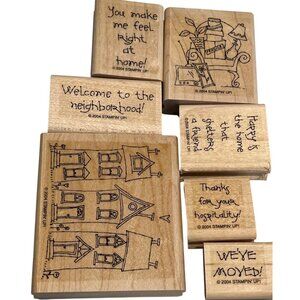 You make
me feel
Right
at
home!
© 2004 STAMPIN' UP!
© 2004 STAMPIN' UP!
Welcome to the
neighborhood!
© 2004 STAMPIN' UP!
Happy is
the home
that
shelters
a friend
© 2004 STAMPIN' UP!
Thanks
for your
hospitality!
© 2004 STAMPIN' UP!
© 2004 STAMPIN' UP!
WE'VE
MOVED!
© 2004 STAMPIN' UP!